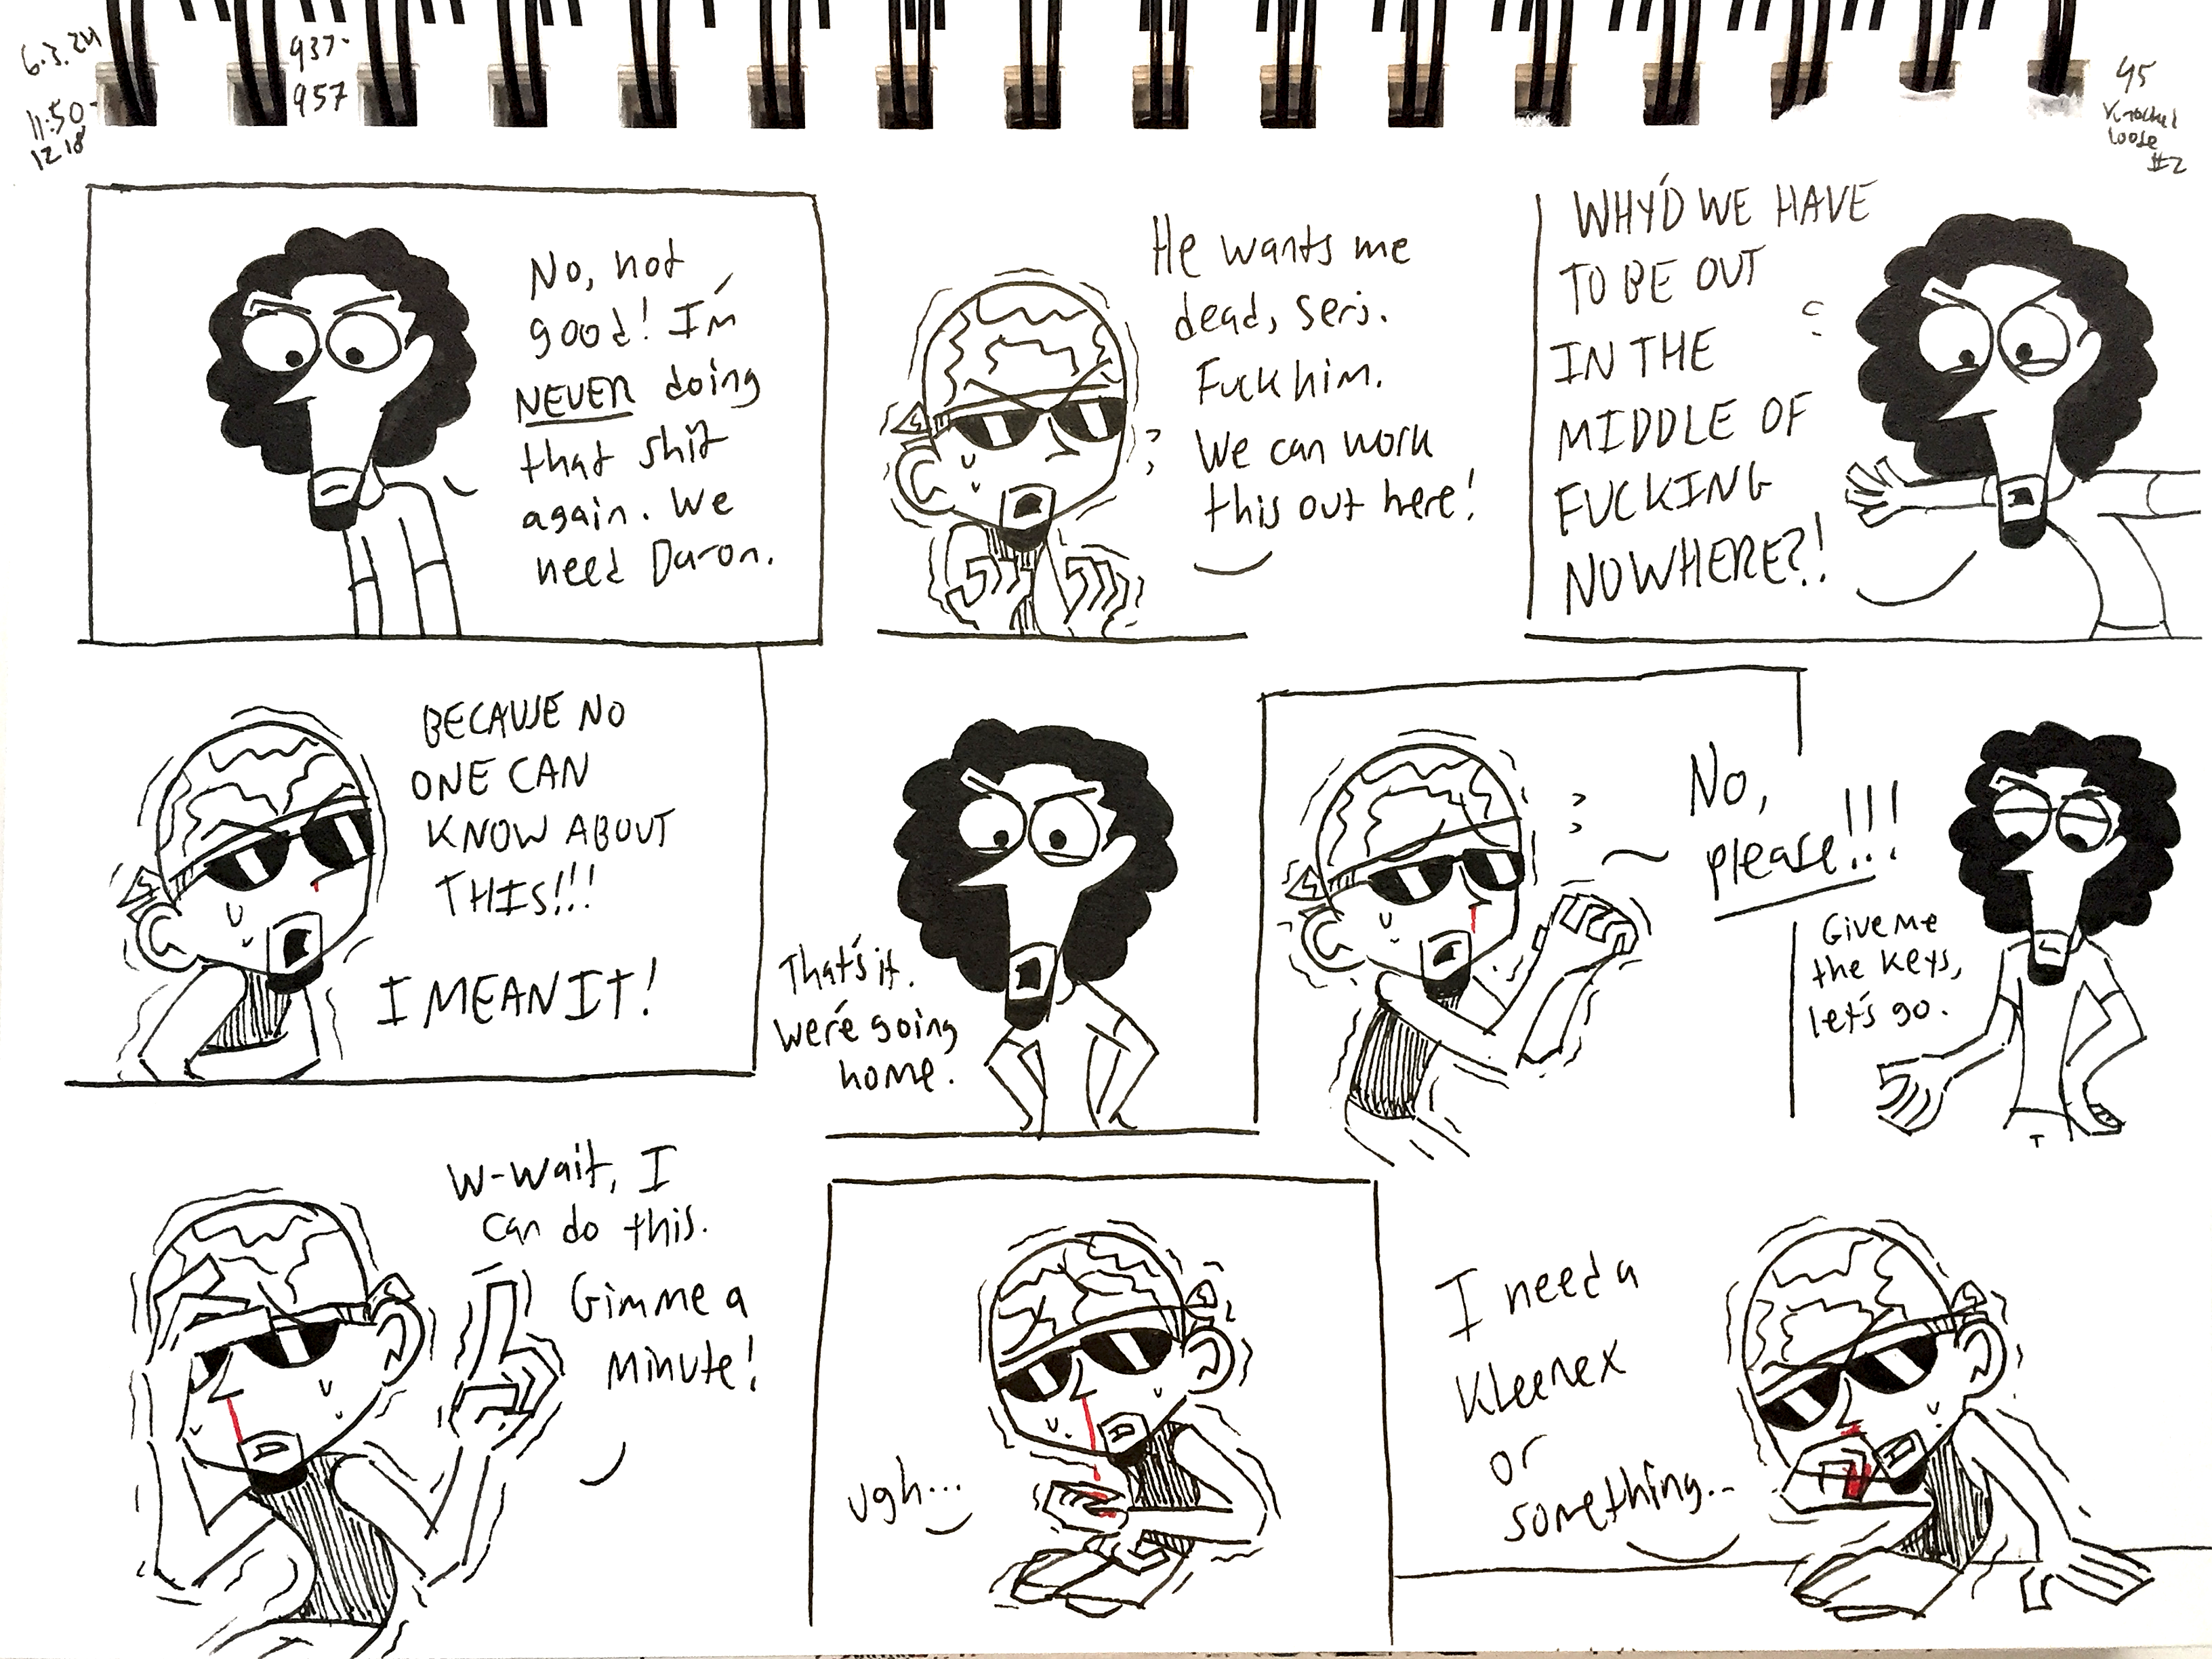 6.3.24
11:50-
1218
937-
957
45
Knocked
loose
#2
No, not
good! I'm
NEVER doing
that shit
again. We
need Daron.
He wants me
dead, Serj.
Fuck him.
We can work
this out here!
WHY'D WE HAVE
TO BE OUT
IN THE
MIDDLE OF
FUCKING
NOWHERE?!
BECAUSE NO
ONE CAN
KNOW ABOUT
THIS!!!
I MEAN IT!
That's it.
We're going
home.
No,
please!!!
Give me
the keys,
let's go.
W-Wait, I
can do this.
Gimme a
minute!
ugh...
I need a
Kleenex
or
something...